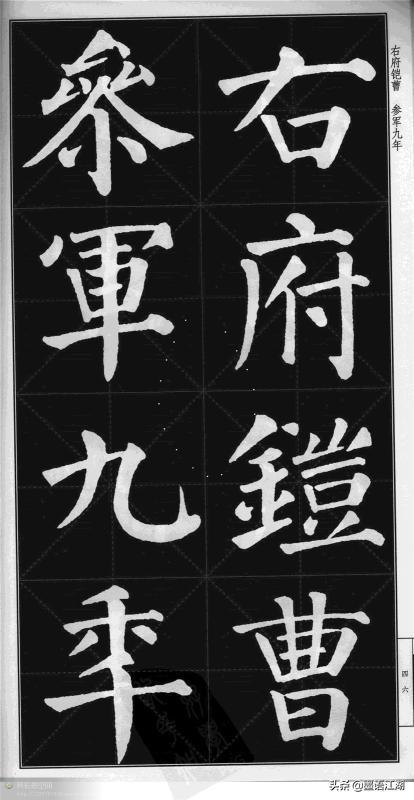 右府鎧曹
參軍九年
右府铠曹 参军九年
四六
头条@墨语江湖